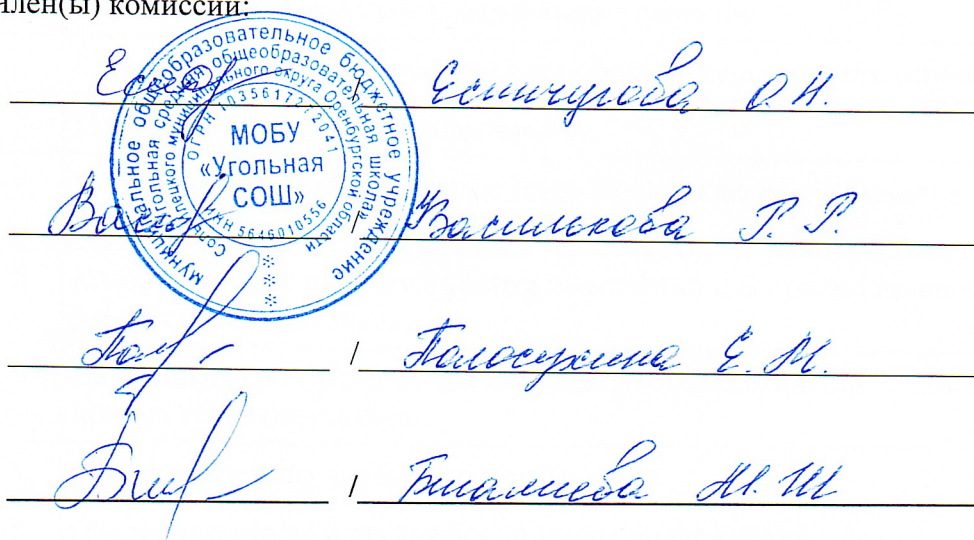 Член(ы) комиссии:
/ Естчугова О.Н.
/ Василькова Р. Р.
/ Палосухина Е. М.
/ Бигалиева Ж. Ш
муниципальное общеобразовательное бюджетное учреждение
«Угольная средняя общеобразовательная школа»
Соль-Илецкого муниципального округа Оренбургской области
ОГРН 1035617272041
МОБУ
«Угольная
СОШ»
ИНН 5646010556